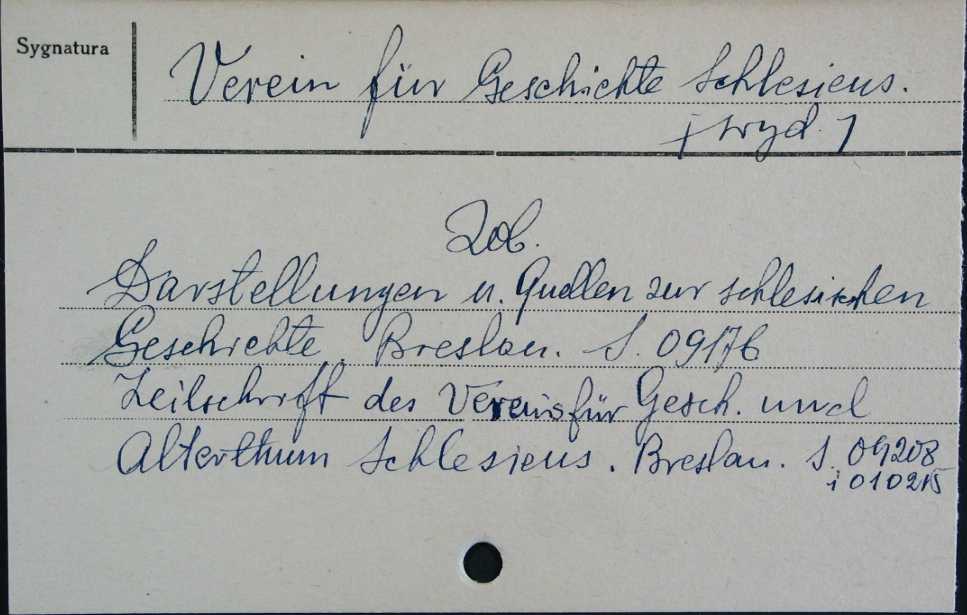 Sygnatura
Verein für Geschichte Schlesiens.
[wyd.]
Zob.
Darstellungen u. Quellen zur schlesischen
Geschichte. Breslau. S. 09176
Zeitschrift des Vereins für Gesch. und
Alterthum Schlesiens. Breslau. S. 09208
i 010215